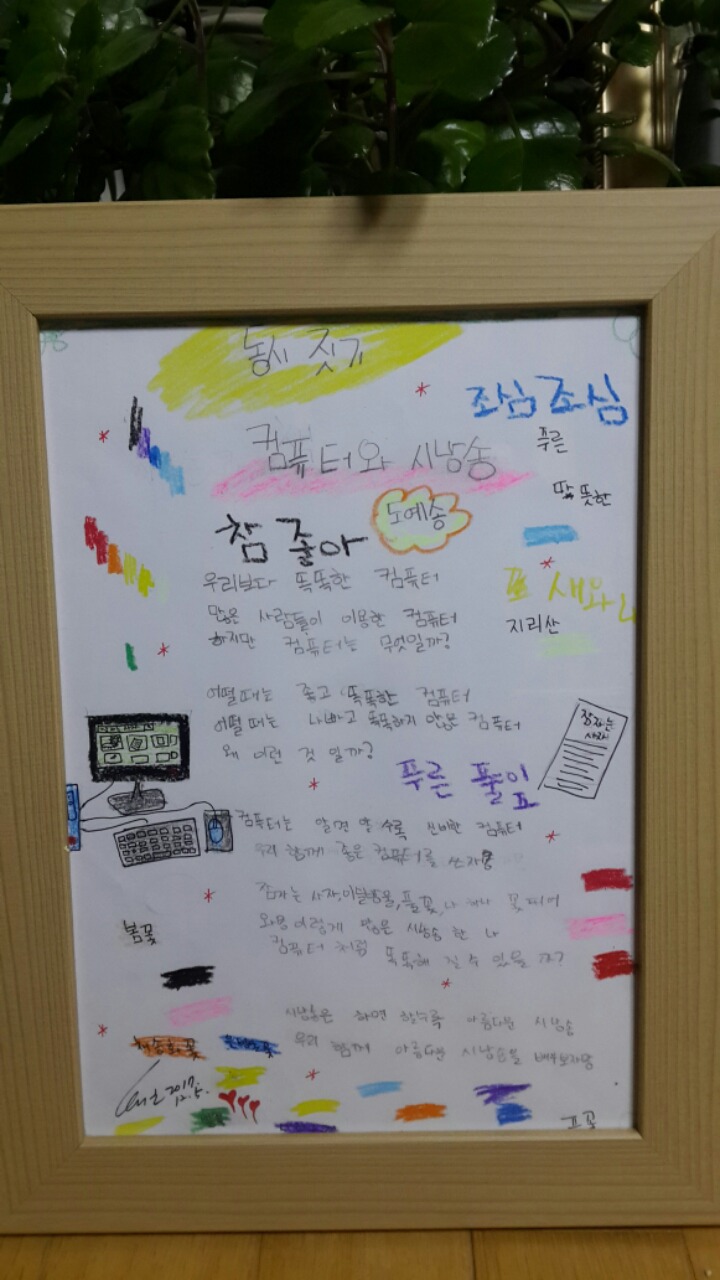 동시 짓기
조심조심
컴퓨터와 시낭송
푸른
따뜻한
도예송
참 좋아
우리보다 똑똑한 컴퓨터
새와
많은 사람들이 이용한 컴퓨터
지리산
하지만 컴퓨터는 무엇일까?
어떨때는 좋고 똑똑한 컴퓨터
어떨때는 나쁘고 똑똑하지 않은 컴퓨터
왜 이런 것 일까?
잠자는
사자
푸른 풀이
컴퓨터는 알면 알수록 신비한 컴퓨터
우리 함께 좋은 컴퓨터를 쓰자
잠자는 사자, 이딸동물, 풀꽃, 나 하나 꽃피어
봄꽃
와용 이렇게 많은 시낭송 한 나
컴퓨터 처럼 똑똑해 질 수 있을 까?
시낭송은 하면 할수록 아름다운 시낭송
채송화꽃
우리 함께 아름다운 시낭송을 배워보자
2017.
12.5.